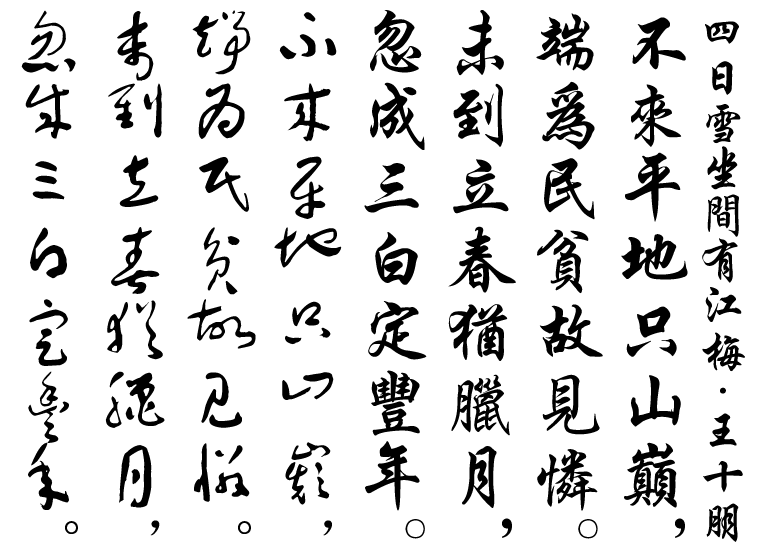 四日雪坐間有江梅·王十朋
不來平地只山巔，
端爲民貧故見憐。
未到立春猶臘月，
忽成三白定豐年。
不来平地只山巅，
端为民贫故见怜。
未到立春犹腊月，
忽成三白定丰年。